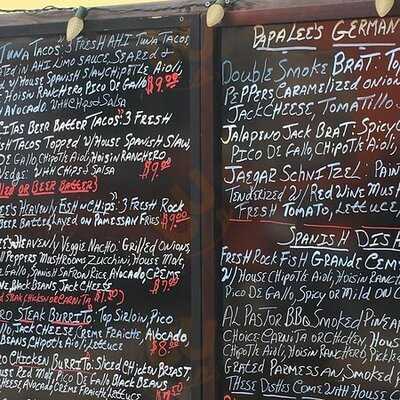 TUNA TACOS: 3 FRESH AHI TUNA TACOS,
IN AHI LIMO SAUCE, SEARED &
W/ HOUSE SPANISH SLAW, CHIPOTLE AIOLI,
HOISIN RANCHERO, PICO DE GALLO $9.00
AVOCADO W/ CHIPS & SALSA
BEER BATTER TACOS: 3 FRESH
TACOS TOPPED W/ HOUSE SPANISH SLAW,
DE GALLO, CHIPOTLE AIOLI, HOISIN RANCHERO
WEDGE: WITH CHIPS & SALSA
OR BEER BATTER)
HEAVENLY FISH N CHIPS: 3 FRESH ROCK
BEER BATTER, LAYED ON PARMESSAN FRIES
HEAVENLY VEGGIE NACHO: GRILLED ONIONS,
PEPPERS, MUSHROOMS, ZUCCHINI, HOUSE MOLE,
GALLO, SPANISH SAFFRON RICE, AVOCADO CREME
BLACK BEANS, JACK CHEESE
STEAK, CHICKEN OR CARNITA $1.50)
STEAK BURRITO: TOP SIRLOIN, PICO
JACK CHEESE, CREME FRAICHE, AVOCADO,
BEANS, CHIPOTLE AIOLI, LETTUCE $8.00
CHICKEN BURRITO: SLICED CHICKEN BREAST,
HOUSE RED MOLE, PICO DE GALLO, BLACK BEANS,
CHEESE, AVOCADO CREME FRAICHE, LETTUCE $7.50
PAPA LEE'S GERMAN
DOUBLE SMOKE BRAT: TOP
PEPPERS, CARAMELIZED ONION
JACK CHEESE, TOMATILLO
JALAPENO JACK BRAT: SPICY
PICO DE GALLO, CHIPOTLE AIOLI,
JAEGAR SCHNITZEL: PAN
TENDERIZED W/ RED WINE MUSH
FRESH TOMATO, LETTUCE,
SPANISH DISH
FRESH ROCK FISH GRANDE CEM
W/ HOUSE CHIPOTLE AIOLI, HOISIN RANCHE
PICO DE GALLO, SPICY OR MILD ON
AL PASTOR BBQ SMOKED PINEAP
CHOICE: CARNITA OR CHICKEN, HOUSE
CHIPOTLE AIOLI, HOISIN RANCHERO,
GRATED PARMESSAN, SMOKED P
THESE DISHES COME WITH HOUSE